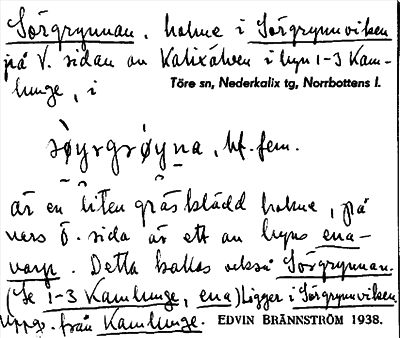 Sörgrynnan, holme i Sörgrynnviken
på V. sidan av Kalixälven i byn 1-3 Kam-
lunge, i
Töre sn, Nederkalix tg, Norrbottens l.
sø̀yrgrøyna, bf. fem.
är en liten gräsklädd holme, på
vers ö. sida är ett av byns ena-
varp. Detta kallas också Sörgrynnan.
(Se 1-3 Kamlunge, ena) Ligger i Sörgrynnviken.
Uppg. från Kamlunge. EDVIN BRÄNNSTRÖM 1938.